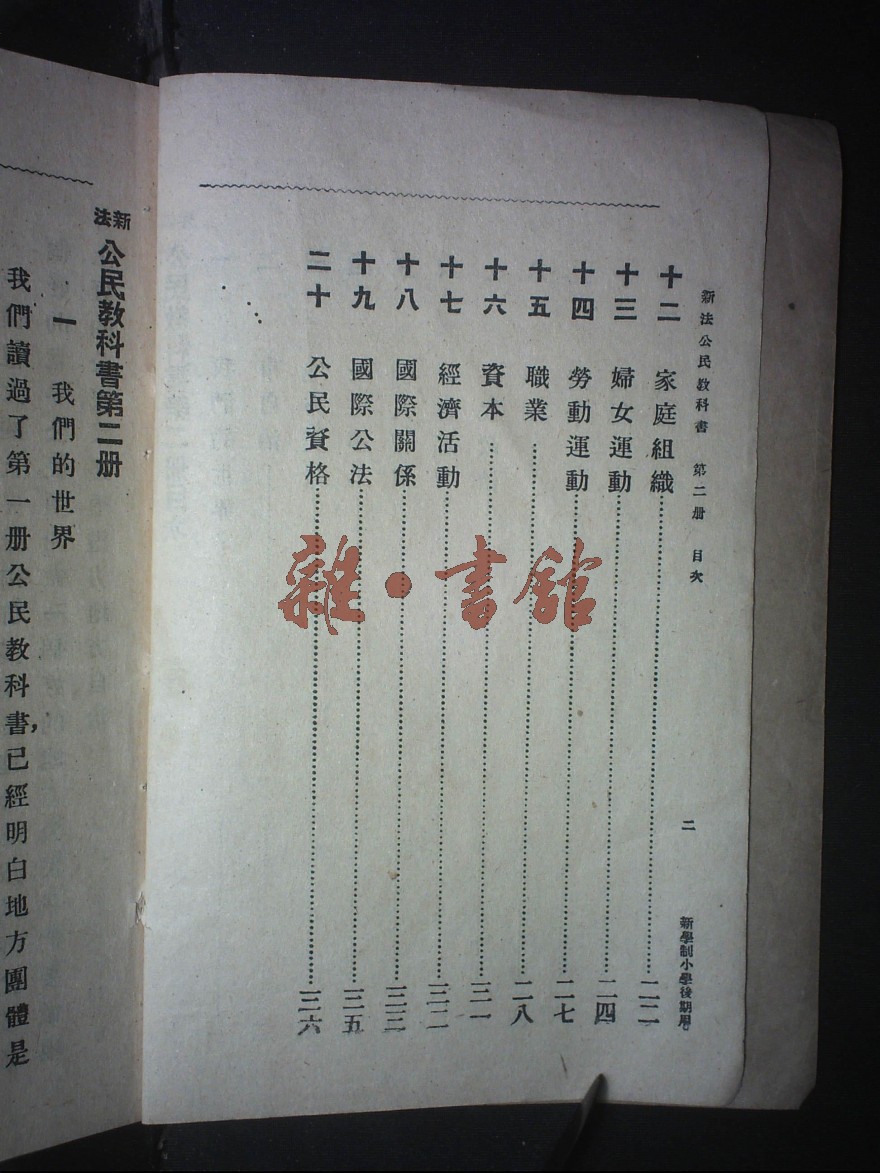 新法公民教科書 第二册 目次 二 新學制小學後期用
十二 家庭組織 二二
十三 婦女運動 二四
十四 勞動運動 二七
十五 職業 二八
十六 資本 三一
十七 經濟活動 三二
十八 國際關係 三三
十九 國際公法 三五
二十 公民資格 三六
新法 公民教科書第二册
一 我們的世界
我們讀過了第一册公民教科書,已經明白地方團體是
雜·書館